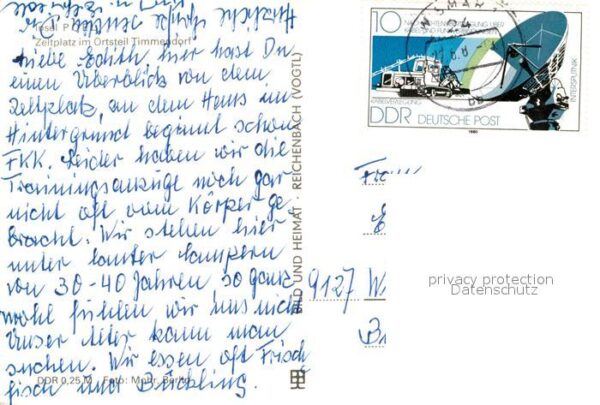 Insel P
Zeltplatz im Ortsteil Timmendorf
Liebe Edith, hier hast Du
einen Überblick von dem
Zeltplatz, an dem Haus im
Hintergrund beginnt schon
FKK. Leider haben wir die
Trainingsanzüge noch gar
nicht oft vom Körper ge-
bracht. Wir stehen hier
unter lauter Campern
von 30-40 Jahren, so ganz
wohl fühlen wir uns nicht
Unser Alter kann man
suchen. Wir essen oft Frisch
fisch und Bückling.
Herzliche Grüße
DDR 0,25 M Foto: Mohr, Berlin
BILD UND HEIMAT · REICHENBACH (VOGTL)
10
DDR DEUTSCHE POST
INTERSPUTNIK
KABELVERLEGUNG
1980
WISMAR
Fr
E
9127 W
privacy protection
Datenschutz